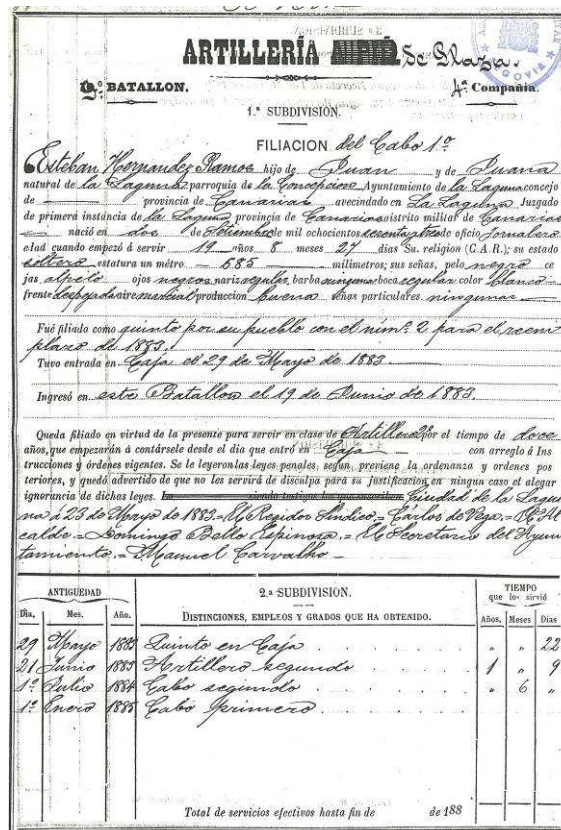 ARTILLERÍA De Plaza.
9.º BATALLON. 4ª Compañia.
1.ª SUBDIVISIÓN.
FILIACION del Cabo 1º
Esteban Hernandez Ramos hijo de Juan y de Juana
natural de la Laguna parroquia de la Concepcion Ayuntamiento de la Laguna concejo
de — provincia de Canarias avecindado en La Laguna Juzgado
de primera instancia de la Laguna provincia de Canarias distrito militar de Canarias
nació en dos de Setiembre de mil ochocientos sesentaytres de oficio Jornalero
edad cuando empezó á servir 19 años 8 meses 27 dias Su religion (C.A.R.); su estado
soltero estatura un métro — 685 — milimetros; sus señas, pelo negro ce
jas al pelo ojos negros nariz regular, barba ninguna boca regular color blanco
frente despejada aire marcial produccion buena señas particulares ningunas
Fué filiado como quinto por su pueblo con el núm.º 2 para el reem
plazo de 1883.
Tuvo entrada en Caja el 29 de Mayo de 1883
Ingresó en este Batallon el 19 de Junio de 1883
Queda filiado en virtud de la presente para servir en clase de Artillero 2º por el tiempo de doce
años, que empezarán á contársele desde el dia que entró en Caja — con arreglo á Ins
trucciones y órdenes vigentes. Se le leyeron las leyes penales segun previene la ordenanza y ordenes pos
teriores, y quedó advertido de que no les servirá de disculpa para su justificacion en ningun caso el alegar
ignorancia de dichas leyes. Ciudad de la Lagu
na á 23 de Mayo de 1883 = El Regidor Sindico = Cárlos de Vega. = El Al
calde = Domingo Bello Espinosa. = El Secretario del Ayun
tamiento. = Manuel Carvalho —
ANTIGUEDAD 2.ª SUBDIVISION. TIEMPO que los sirvió
Dia. Mes. Año. DISTINCIONES, EMPLEOS Y GRADOS QUE HA OBTENIDO. Años. Meses Dias
29 Mayo 1883 Quinto en Caja " " 22
21 Junio 1883 Artillero segundo 1 " 9
1º Julio 1884 Cabo segundo " 6 "
1º Enero 1885 Cabo primero
Total de servicios efectivos hasta fin de de 188